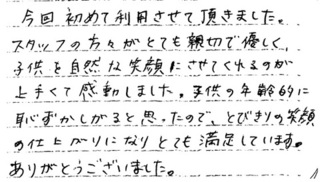 今回初めて利用させて頂きました。
スタッフの方々がとても親切で優しく、
子供を自然な笑顔にさせてくれるのが
上手くて感動しました。子供の年齢的に
恥ずかしがると思ったので、とびきりの笑顔
の仕上がりになりとても満足しています。
ありがとうございました。